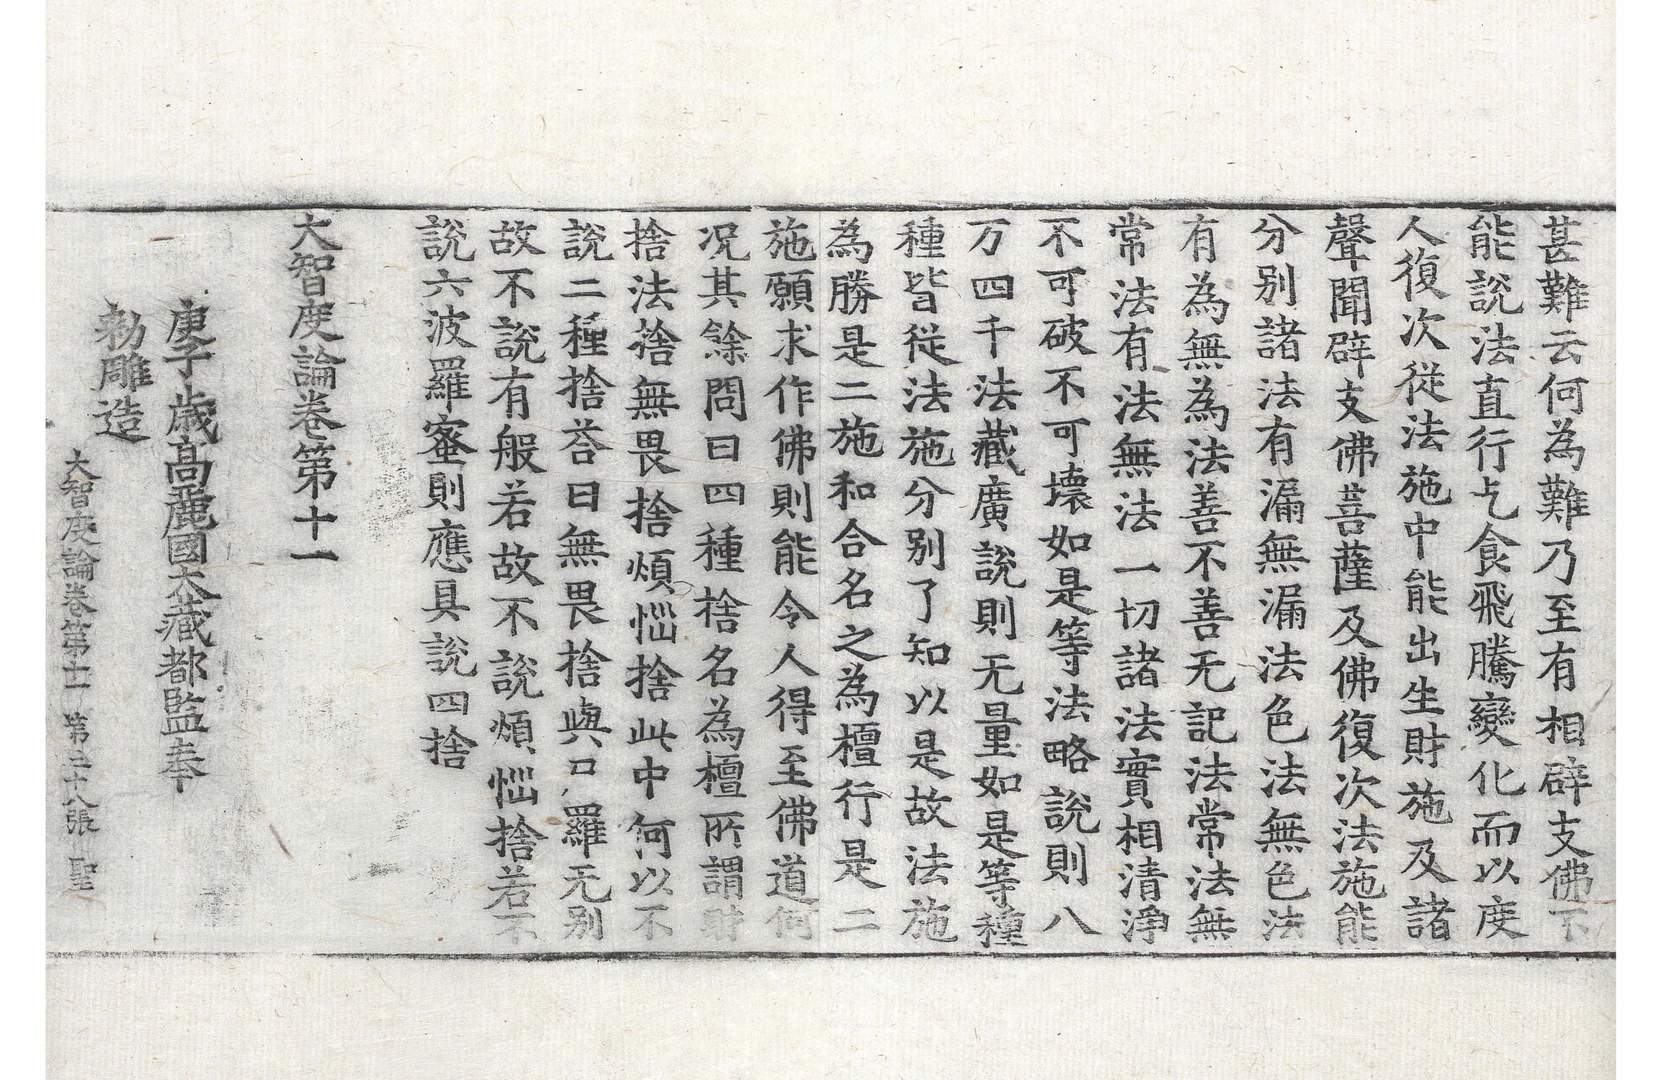 甚難云何為難乃至有相辟支佛不
能說法直行乞食飛騰變化而以度
人復次從法施中能出生財施及諸
聲聞辟支佛菩薩及佛復次法施能
分別諸法有漏無漏法色法無色法
有為無為法善不善无記法常法無
常法有法無法一切諸法實相清淨
不可破不可壞如是等法略說則八
万四千法藏廣說則无量如是等種
種皆從法施分別了知以是故法施
為勝是二施和合名之為檀行是二
施願求作佛則能令人得至佛道何
况其餘問曰四種捨名為檀所謂財
捨法捨無畏捨煩惱捨此中何以不
說二種捨荅曰無畏捨與尸羅无別
故不說有般若故不說煩惱捨若不
說六波羅蜜則應具說四捨
大智度論卷第十一
庚子歲高麗國大藏都監奉
勑雕造
大智度論卷第十一 第三十八張 聖